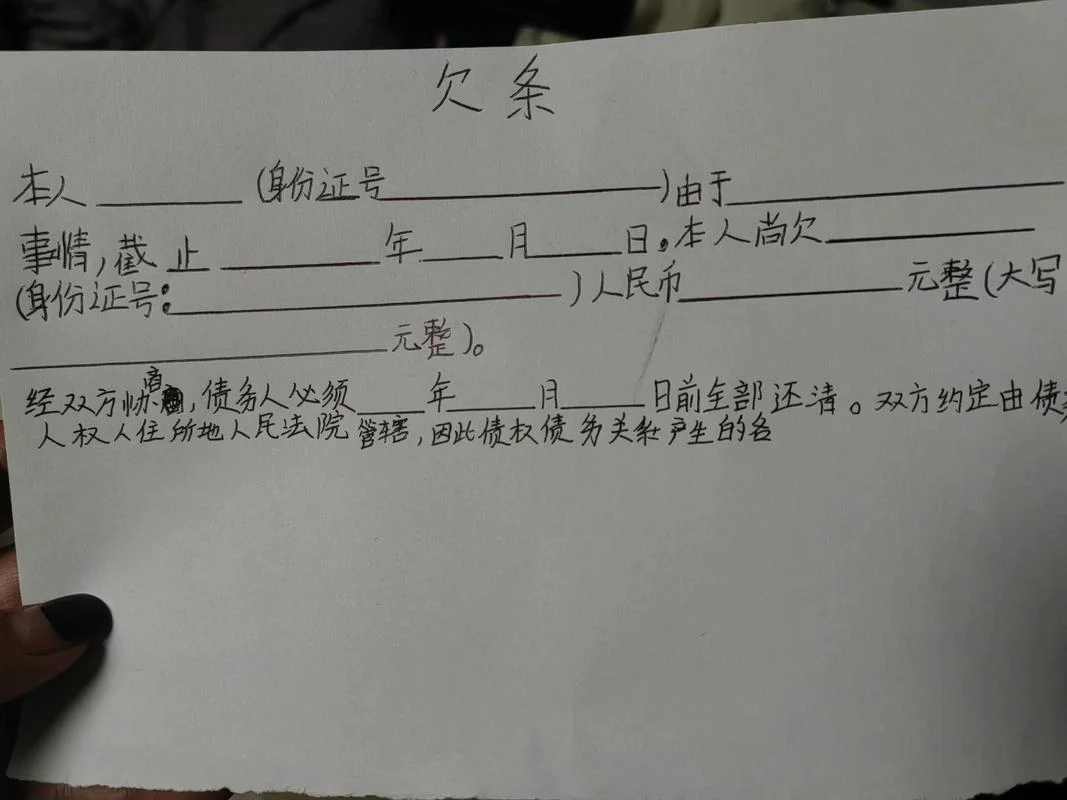 欠条
本人______(身份证号____________)由于____________
事情,截止______年____月____日。本人尚欠________
(身份证号:____________)人民币________元整(大写
____________元整)。
经双方协商,债务人必须____年____月____日前全部还清。双方约定由债
人权人住所地人民法院管辖,因此债权债务关系产生的各